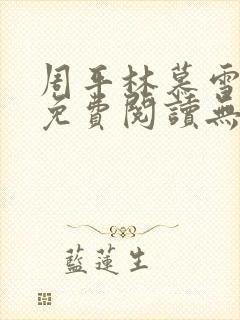 周平林慕雪
免費閱讀無
藍蓮生